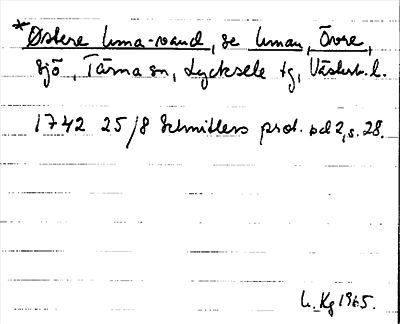 *Østere Uma-vand, se Uman, Övre,
sjö, Tärna sn, Lycksele tg, Västerb. l.
1742 25/8 Schnitlers prot. bd 2, s. 28.
L. Kg 1965.